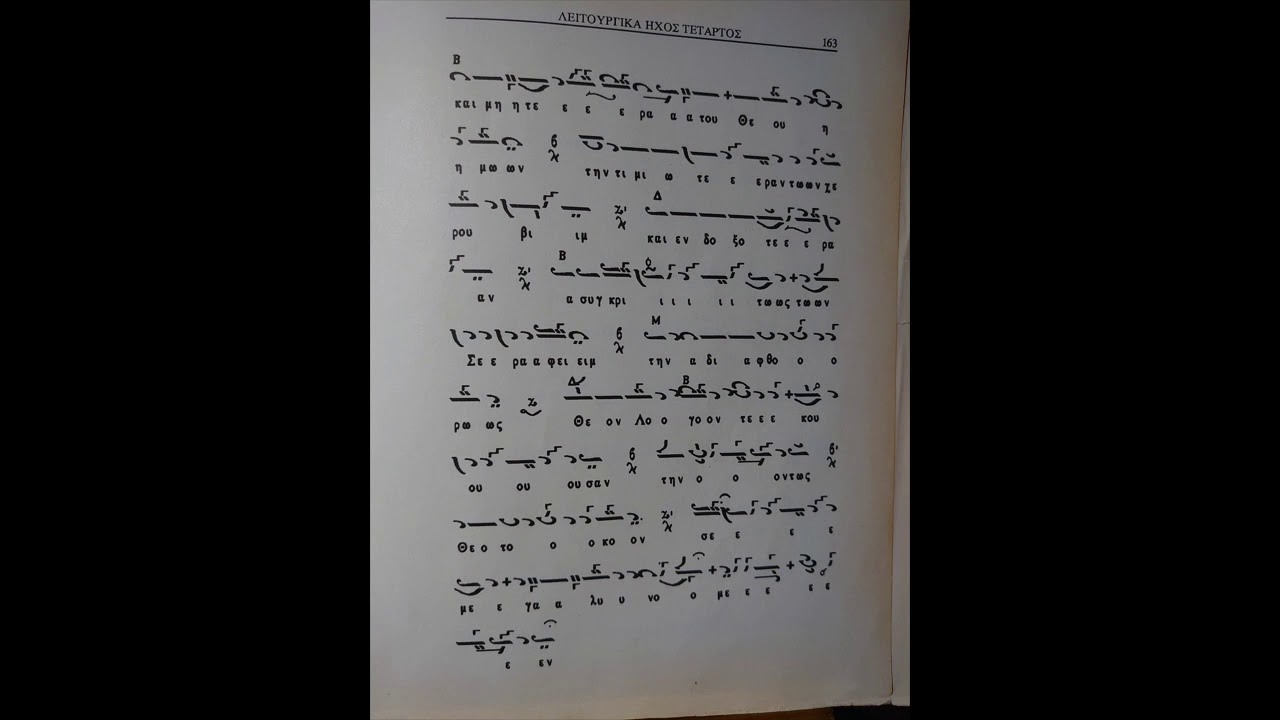 ΛΕΙΤΟΥΡΓΙΚΑ ΗΧΟΣ ΤΕΤΑΡΤΟΣ 163
Β
και μη η τε ε ε ε ρα α α του Θε ου η
η μω ων την τι μι ω τε ε ε ραν τω ων χε
Δ
ρου βι ιμ και εν δο ξο τε ε ε ρα
Β
αν α συγ κρι ι ι ι ι ι τω ως τω ων
Μ
Σε ε ρα α φει ειμ την α δι α φθο ο ο
Δ Β
ρω ως Θε ον Λο ο γο ον τε ε ε κου
ου ου ου σαν την ο ο οντως
Θε ο το ο ο κο ον σε ε ε ε
με ε γα α λυ υ νο ο με ε ε ε ε
ε εν